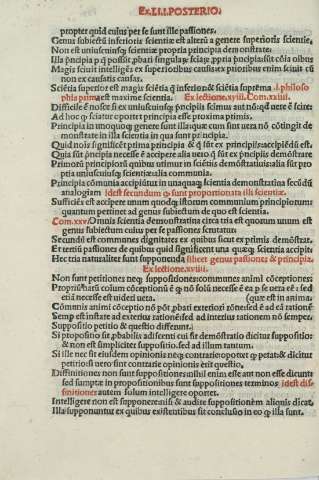 Ex.LI.I.POSTERIO.
propter quid cuius per se sunt ille passiones.
Genus subiectū inferioris scientie est alterū a genere superioris scientie.
Non est uniuscuiusq; scientie propria principia demonstrare.
Illa pn̄cipia p q̄ possēt pbari singulaȝ sciāȝ ppria pn̄cipia sūt oīm
Magis sciuit intelligēs ex superioribus causis ex prioribus enim sciuit cū
non ex causatis causas.
Sciētia superior est magis sciētia q̄ inferior & sciētia suprema .i. philoso
phia prima est maxime scientia. Ex lectione.xviii. Com.xxiiii.
Difficile ē nosce si ex uniuscuiusq; pncipiis scimus aut nō quod uere ē scire.
Ad hoc q sciatur oportet principia esse proxima primis.
Principia in unoquoq; genere sunt illa que cum sint uera nō cōtingit de
monstrare in illa scientia in qua sunt principia.
Quid nois significēt prima principia & q sūt ex principiis accipiēdū est.
Quia sūt pncipia necesse ē accipere alia uero q sūt ex pncipiis demōstrare
Primorū principiorū quibus utimur in sciētiis demōstratiuis alia sūt pro
pria uniuscuiusq; scientie alia communia.
Principia cōmunia accipiuntur in unaquaq; scientia demonstratiua secūdū
analogiam idest secundum q proportionata illi scientie.
Sufficiēs est accipere unum quodq; istorum communium principiorum
quantum pertinet ad genus subiectum de quo est scientia.
Com.xxv. Omnis scientia demonstratiua circa tria est quorum unum est
genus subiectum cuius per se passiones scrutatur.
Secundū est communes dignitates ex quibus sicut ex primis demōstrat.
Et tertiū passiones de quibus quid significent una queq; scientia accipit.
Hec tria naturaliter sunt supponenda silicet genus passiones & principia.
Ex lectione.xviiii.
Non sunt petitiones neq; suppositiones communes animi cōceptiones.
Propriū est cōis conceptionē q nō solū necesse ē ea p se uera eē: sed
etiā necesse est uideri uera. (que est in anima.
Cōmunis animi conceptio nō pōt pbari exteriori rōne sed ē ad eā rationē
Semp est instare ad exterius rationē: sed ad interius rationem nō semper.
Suppositio petitio & questio differunt.
Si propositio sit pbabilis adiscenti cui fit demōstratio dicitur suppositio
& non est simpliciter suppositio, sed ad illum tantum.
Si ille nec sit eiusdem opinionis neq; contrarie oportet q petat & dicitur
petitio si uero sunt contrarie opinionis erit questio.
Diffinitiones non sunt suppositiones: nihil enim esse aut non esse dicunt
sed sumptē in propositionibus sunt suppositiones terminos idest dif
finitiones autem solum intelligere oportet.
Intelligere non est supponere nisi & audire suppositionem aliquis dicat.
Illa supponuntur ex quibus existentibus sit conclusio in eo q illa sunt.